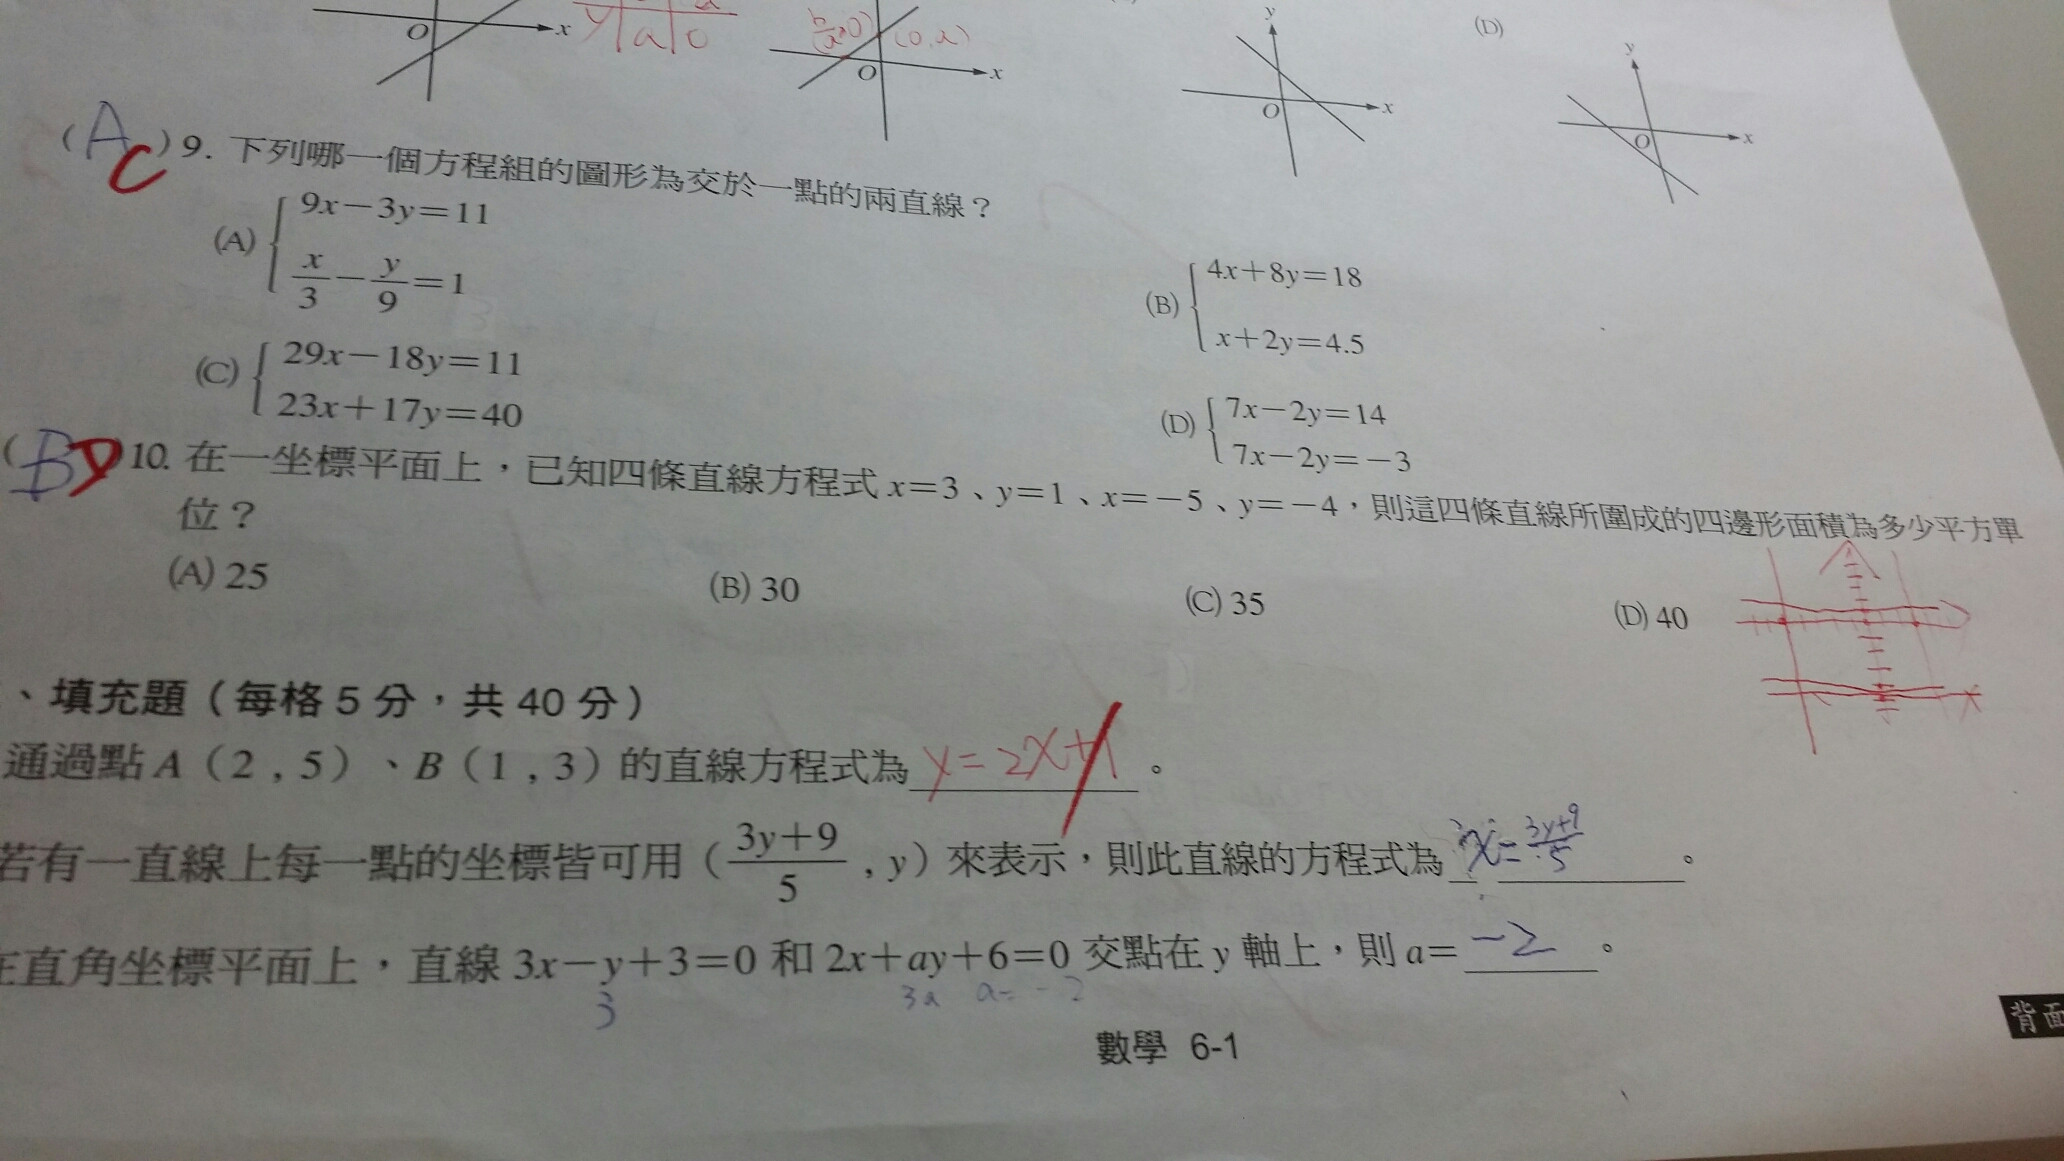 O x
y a 0
(0, a)
O x
y
O x
(D)
y
O x
(A C) 9. 下列哪一個方程組的圖形為交於一點的兩直線？
(A) { 9x－3y＝11
x/3－y/9＝1
(B) { 4x＋8y＝18
x＋2y＝4.5
(C) { 29x－18y＝11
23x＋17y＝40
(D) { 7x－2y＝14
7x－2y＝－3
(B D) 10. 在一坐標平面上，已知四條直線方程式 x＝3、y＝1、x＝－5、y＝－4，則這四條直線所圍成的四邊形面積為多少平方單
位？
(A) 25 (B) 30 (C) 35 (D) 40
、填充題（每格 5 分，共 40 分）
通過點 A（2 , 5）、B（1 , 3）的直線方程式為 y=2x+1 。
若有一直線上每一點的坐標皆可用（(3y＋9)/5 , y）來表示，則此直線的方程式為 x=(3y+9)/5 。
在直角坐標平面上，直線 3x－y＋3＝0 和 2x＋ay＋6＝0 交點在 y 軸上，則 a＝ -2 。
3 3a a=-2
數學 6-1
背面